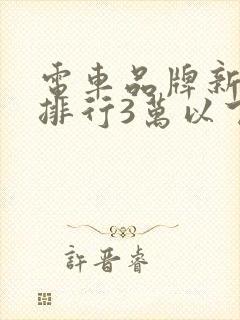 電車品牌新
排行3萬以下
許晋睿